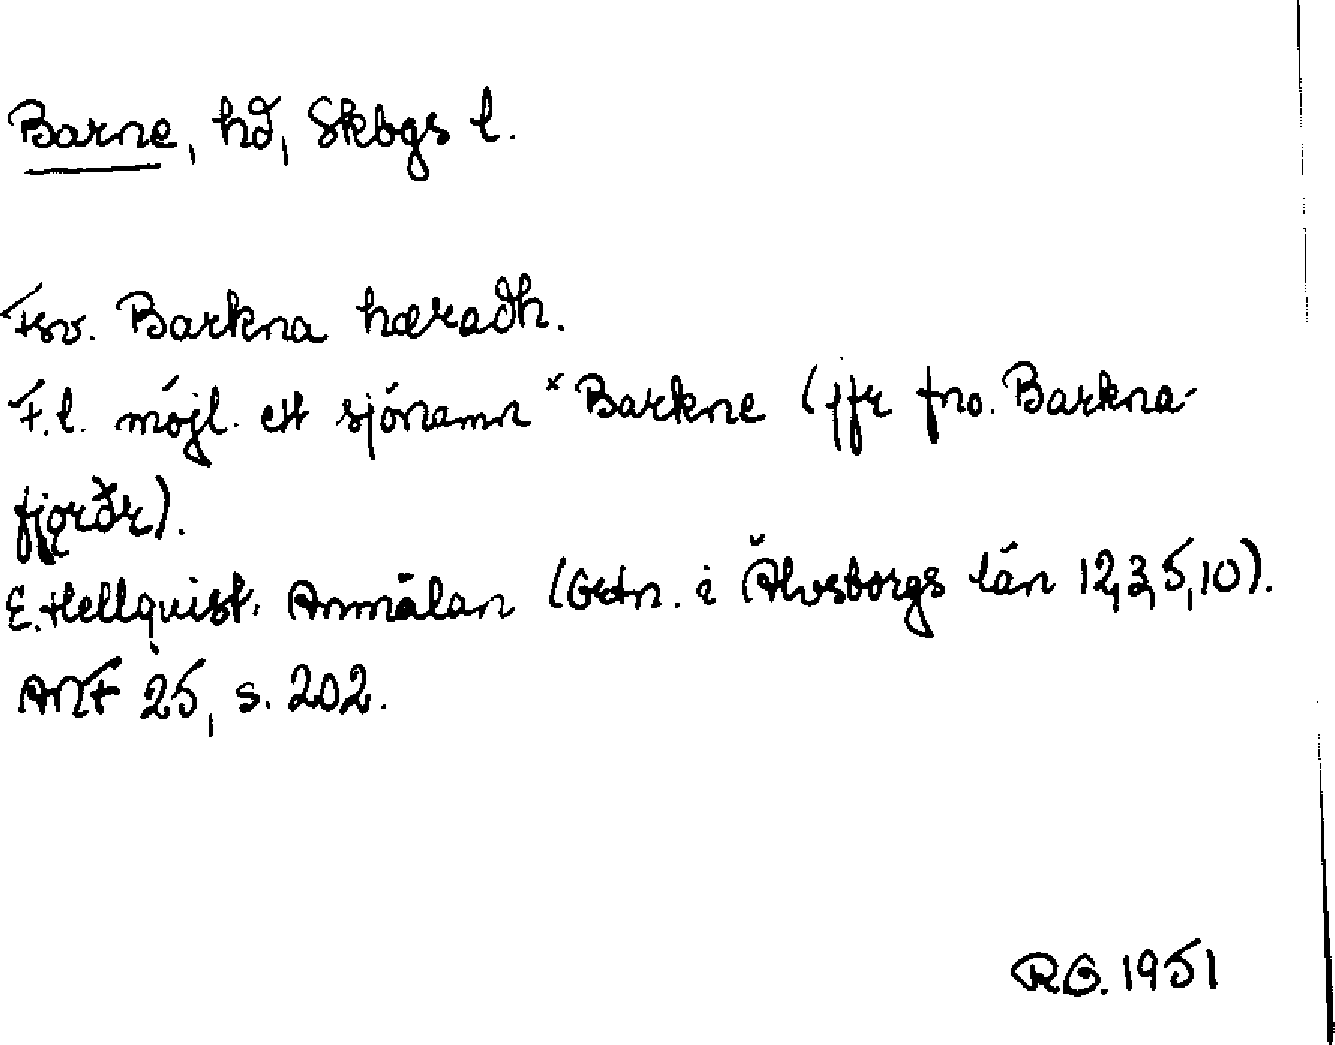 Barne, hd, Skbgs l.
Fsv. Barkna hæradh.
F.l. möjl. ett sjönamn *Barkne (jfr fno. Barkna-
fjǫrðr).
E. Hellquist. Anmälan (Ortn. i Älvsborgs län 12,3,5,10).
ANF 25, s. 202.
R.G. 1951